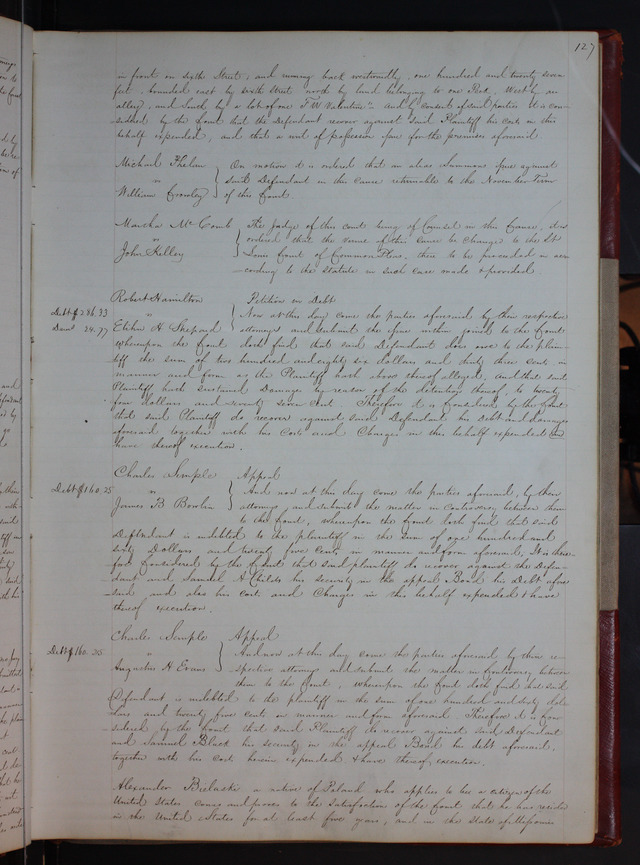 127
in front on sixth Street, and running back westwardly, one hundred and twenty seven
feet. bounded east by sixth street north by land belonging to one Peck, West by an
alley, and South by a lot of one T W Valentine. And by consent of said parties it is con-
sidered by the Court that the Defendant recover against said Plaintiff his costs in this
behalf expended, and that a writ of possession for the premises aforesaid.
Michael Phelan } On motion it is ordered that an alias Summons against
vs } said Defendant in this cause returnable to the November Term
William Crowley } of this Court
Martha McComb } The Judge of this court being of Counsel in this Cause, it is
vs } ordered that the venue of this cause be changed to the St
John Kelley } Louis Court of Common Pleas, there to be proceeded in ac-
cording to the statute in such case made & provided
Robert Hamilton } Petition in Debt
Debt $286.33 vs } Now at this day come the parties aforesaid by their respective
Dam 24.77 H Shepard } attorneys and submit the issue within joined to the Court
whereupon the Court doth find that said Defendant does owe to the plain-
tiff the sum of two hundred and eighty six dollars and thirty three cents in
manner and form as the Plaintiff hath above thereof alleged, And that said
Plaintiff hath sustained Damage by reason of the detention thereof, to twenty
four dollars and seventy seven cents. Therefore it is Considered by the Court
that said Plaintiff do recover against said Defendant his debt and damages
aforesaid together with his Costs and Charges in this behalf expended and
have thereof execution.
Charles Semple } Appeal
Debt $160.25 vs } And now at this day come the parties aforesaid, by their
James B Bowlin } attorneys and submit the matter in controversy between them
to the Court, whereupon the Court doth find that said
Defendant is indebted to the plaintiff in the sum of one hundred and
sixty Dollars and twenty five Cents in manner and form aforesaid, It is there-
fore Considered by the Court that said plaintiff do recover against the Defen-
dant and Samuel A Childs his security in the appeal Bond his Debt afore
said and also his Costs and Charges in this behalf expended & have
thereof execution.
Charles Semple } Appeal
Debt $160.25 vs } And now at this day come the parties aforesaid by their re-
Augustus H Evans } spective attorneys and submit the matter in Controversy between
them to the Court, whereupon the Court doth find that said
Defendant is indebted to the plaintiff in the sum of one hundred and sixty dol-
lars and twenty five cents in manner and form aforesaid Therefore it is Con-
sidered by the Court that said Plaintiff do recover against said Defendant
and Samuel Black his security in the appeal Bond his debt aforesaid,
together with his cost herein expended & have thereof execution.
Alexander Bielaski a native of Poland who applies to be a citizen of the
United States comes and proves to the satisfaction of the Court that he has resided
in the United States for at least five years, and in the State of Missouri